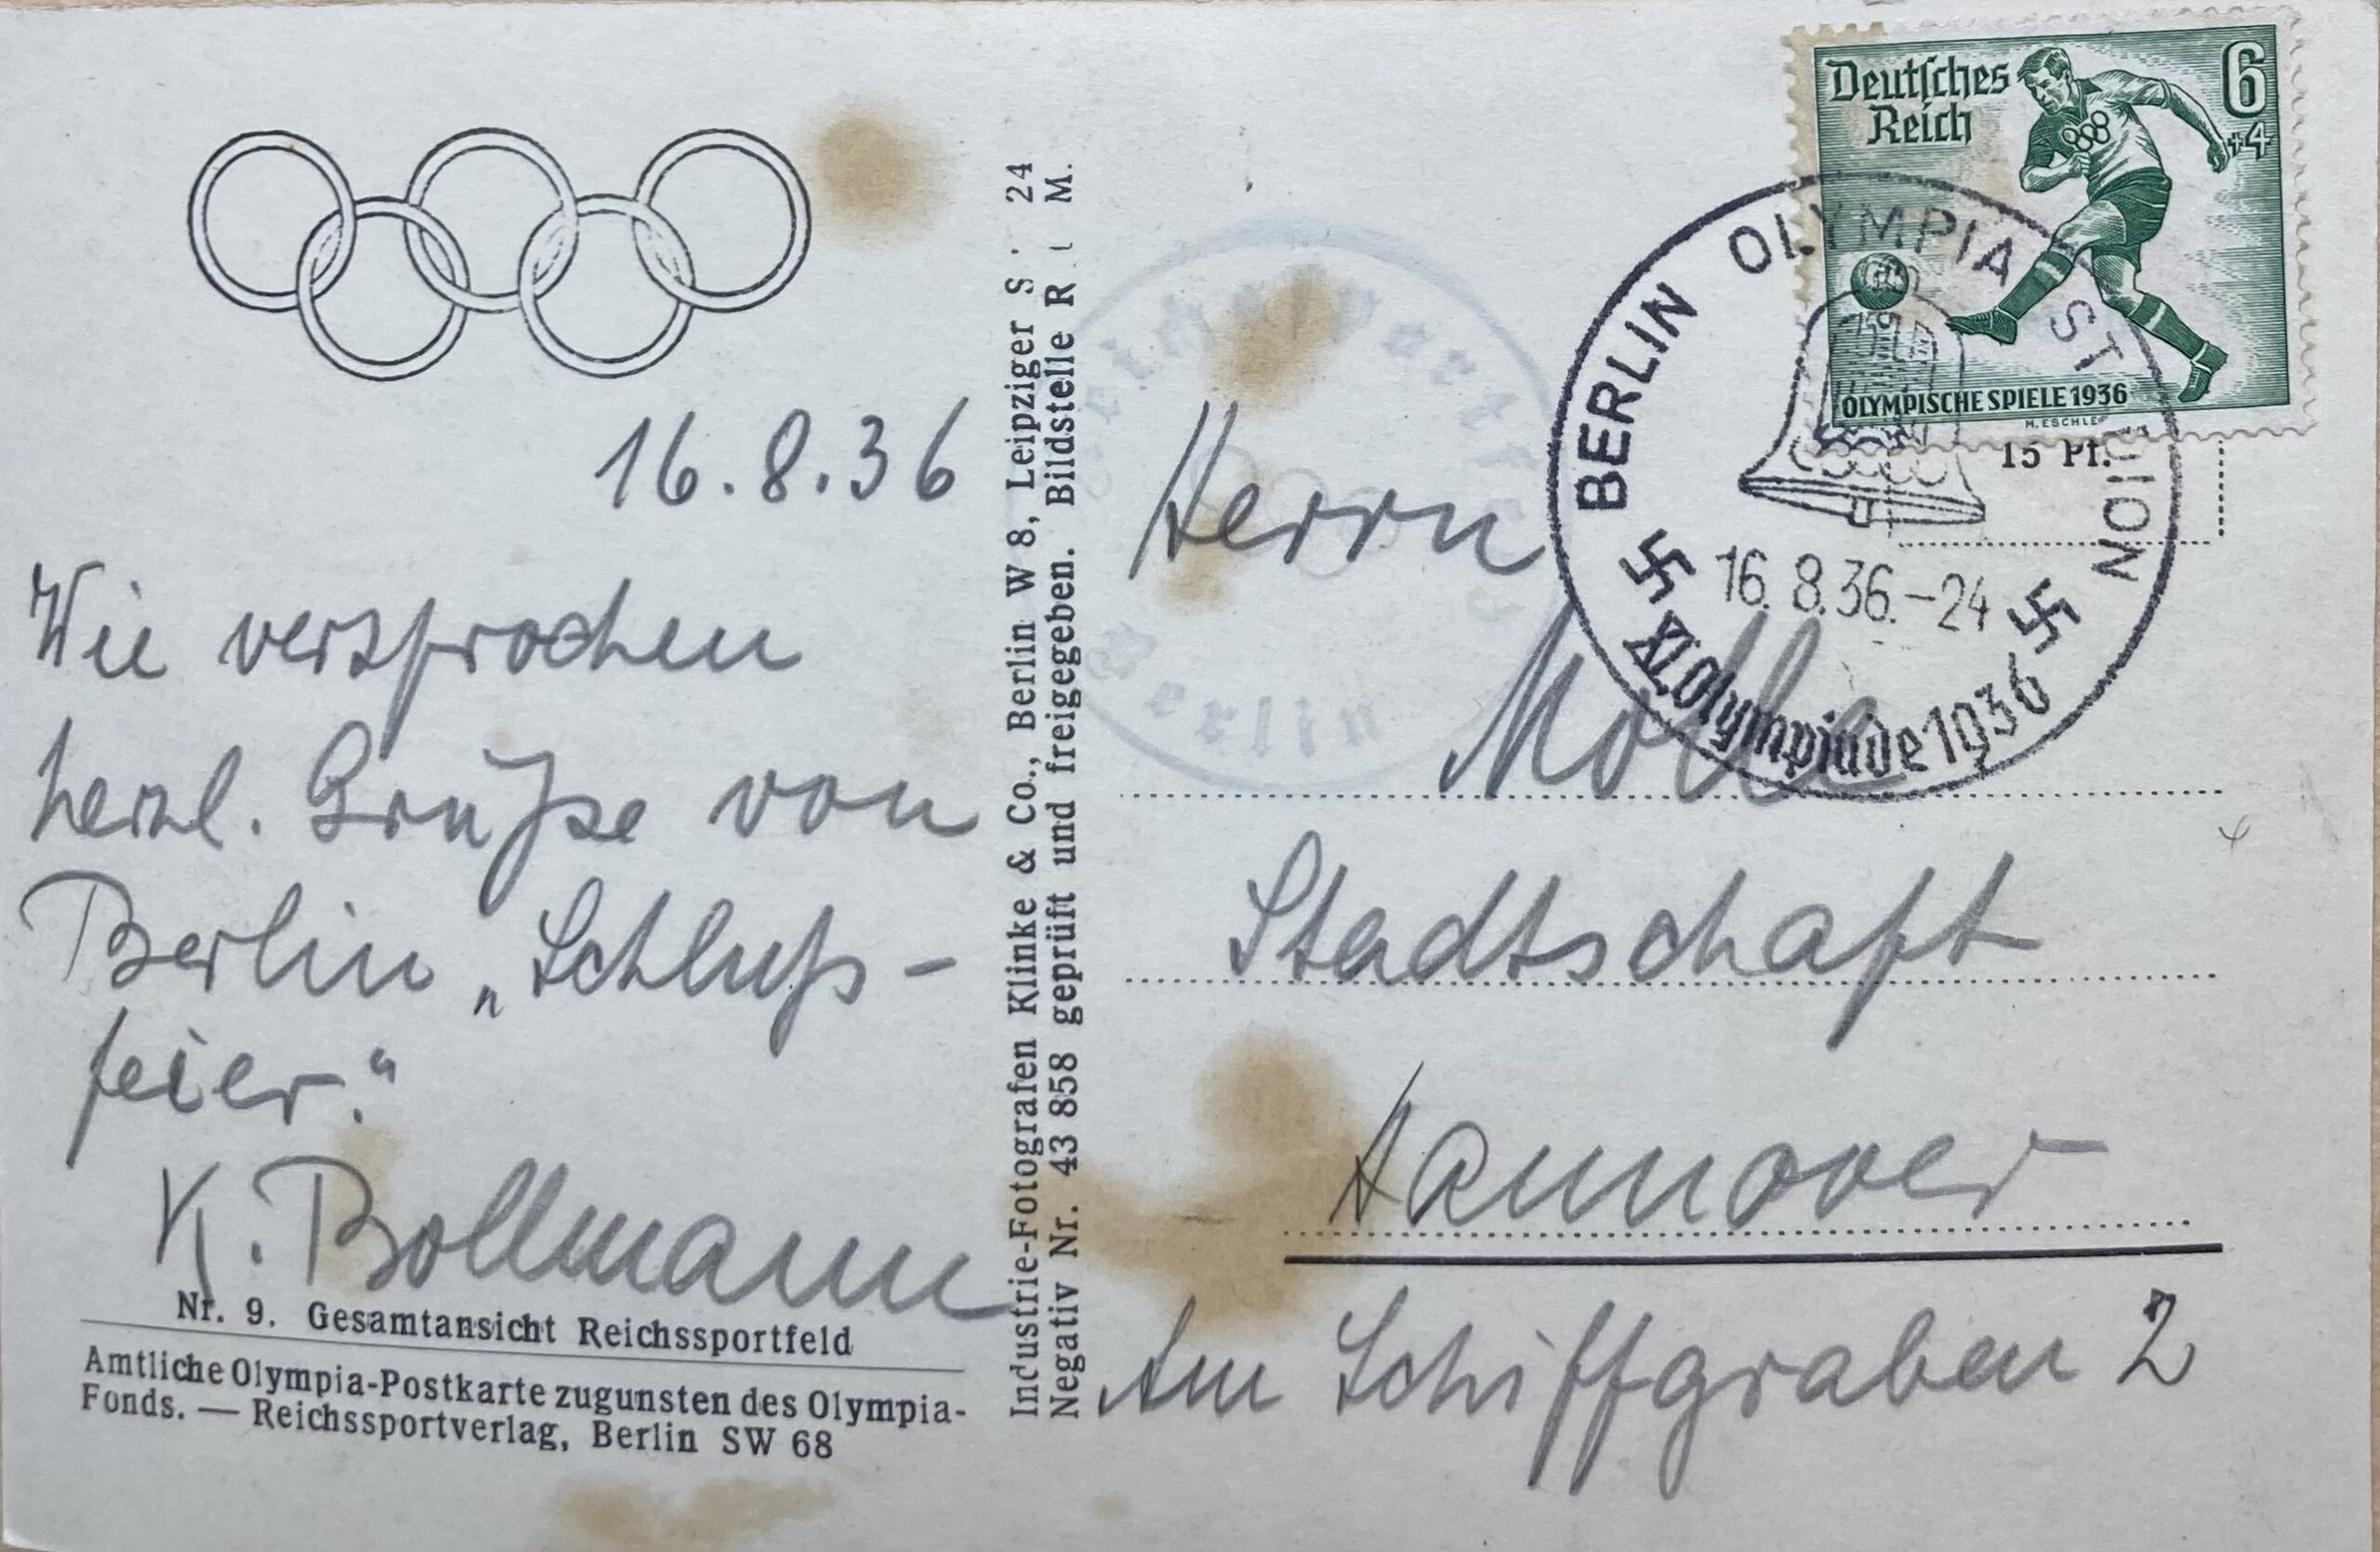 16.8.36
Wie versprochen
herzl. Grüße von
Berlin „Schluß-
feier."
K. Bollmann
Nr. 9. Gesamtansicht Reichssportfeld
Amtliche Olympia-Postkarte zugunsten des Olympia-
Fonds. — Reichssportverlag, Berlin SW 68
Industrie-Fotografen Klinke & Co., Berlin W 8, Leipziger 24
Negativ Nr. 43 858 geprüft und freigegeben. Bildstelle R M.
Deutsches
Reich
6
+4
OLYMPISCHE SPIELE 1936
M. ESCHLE
15 Pf.
BERLIN OLYMPIA STADION
16.8.36.-24
XI. Olympiade 1936
Herrn
Molle
Stadtschaft
Hannover
Am Schiffgraben 2